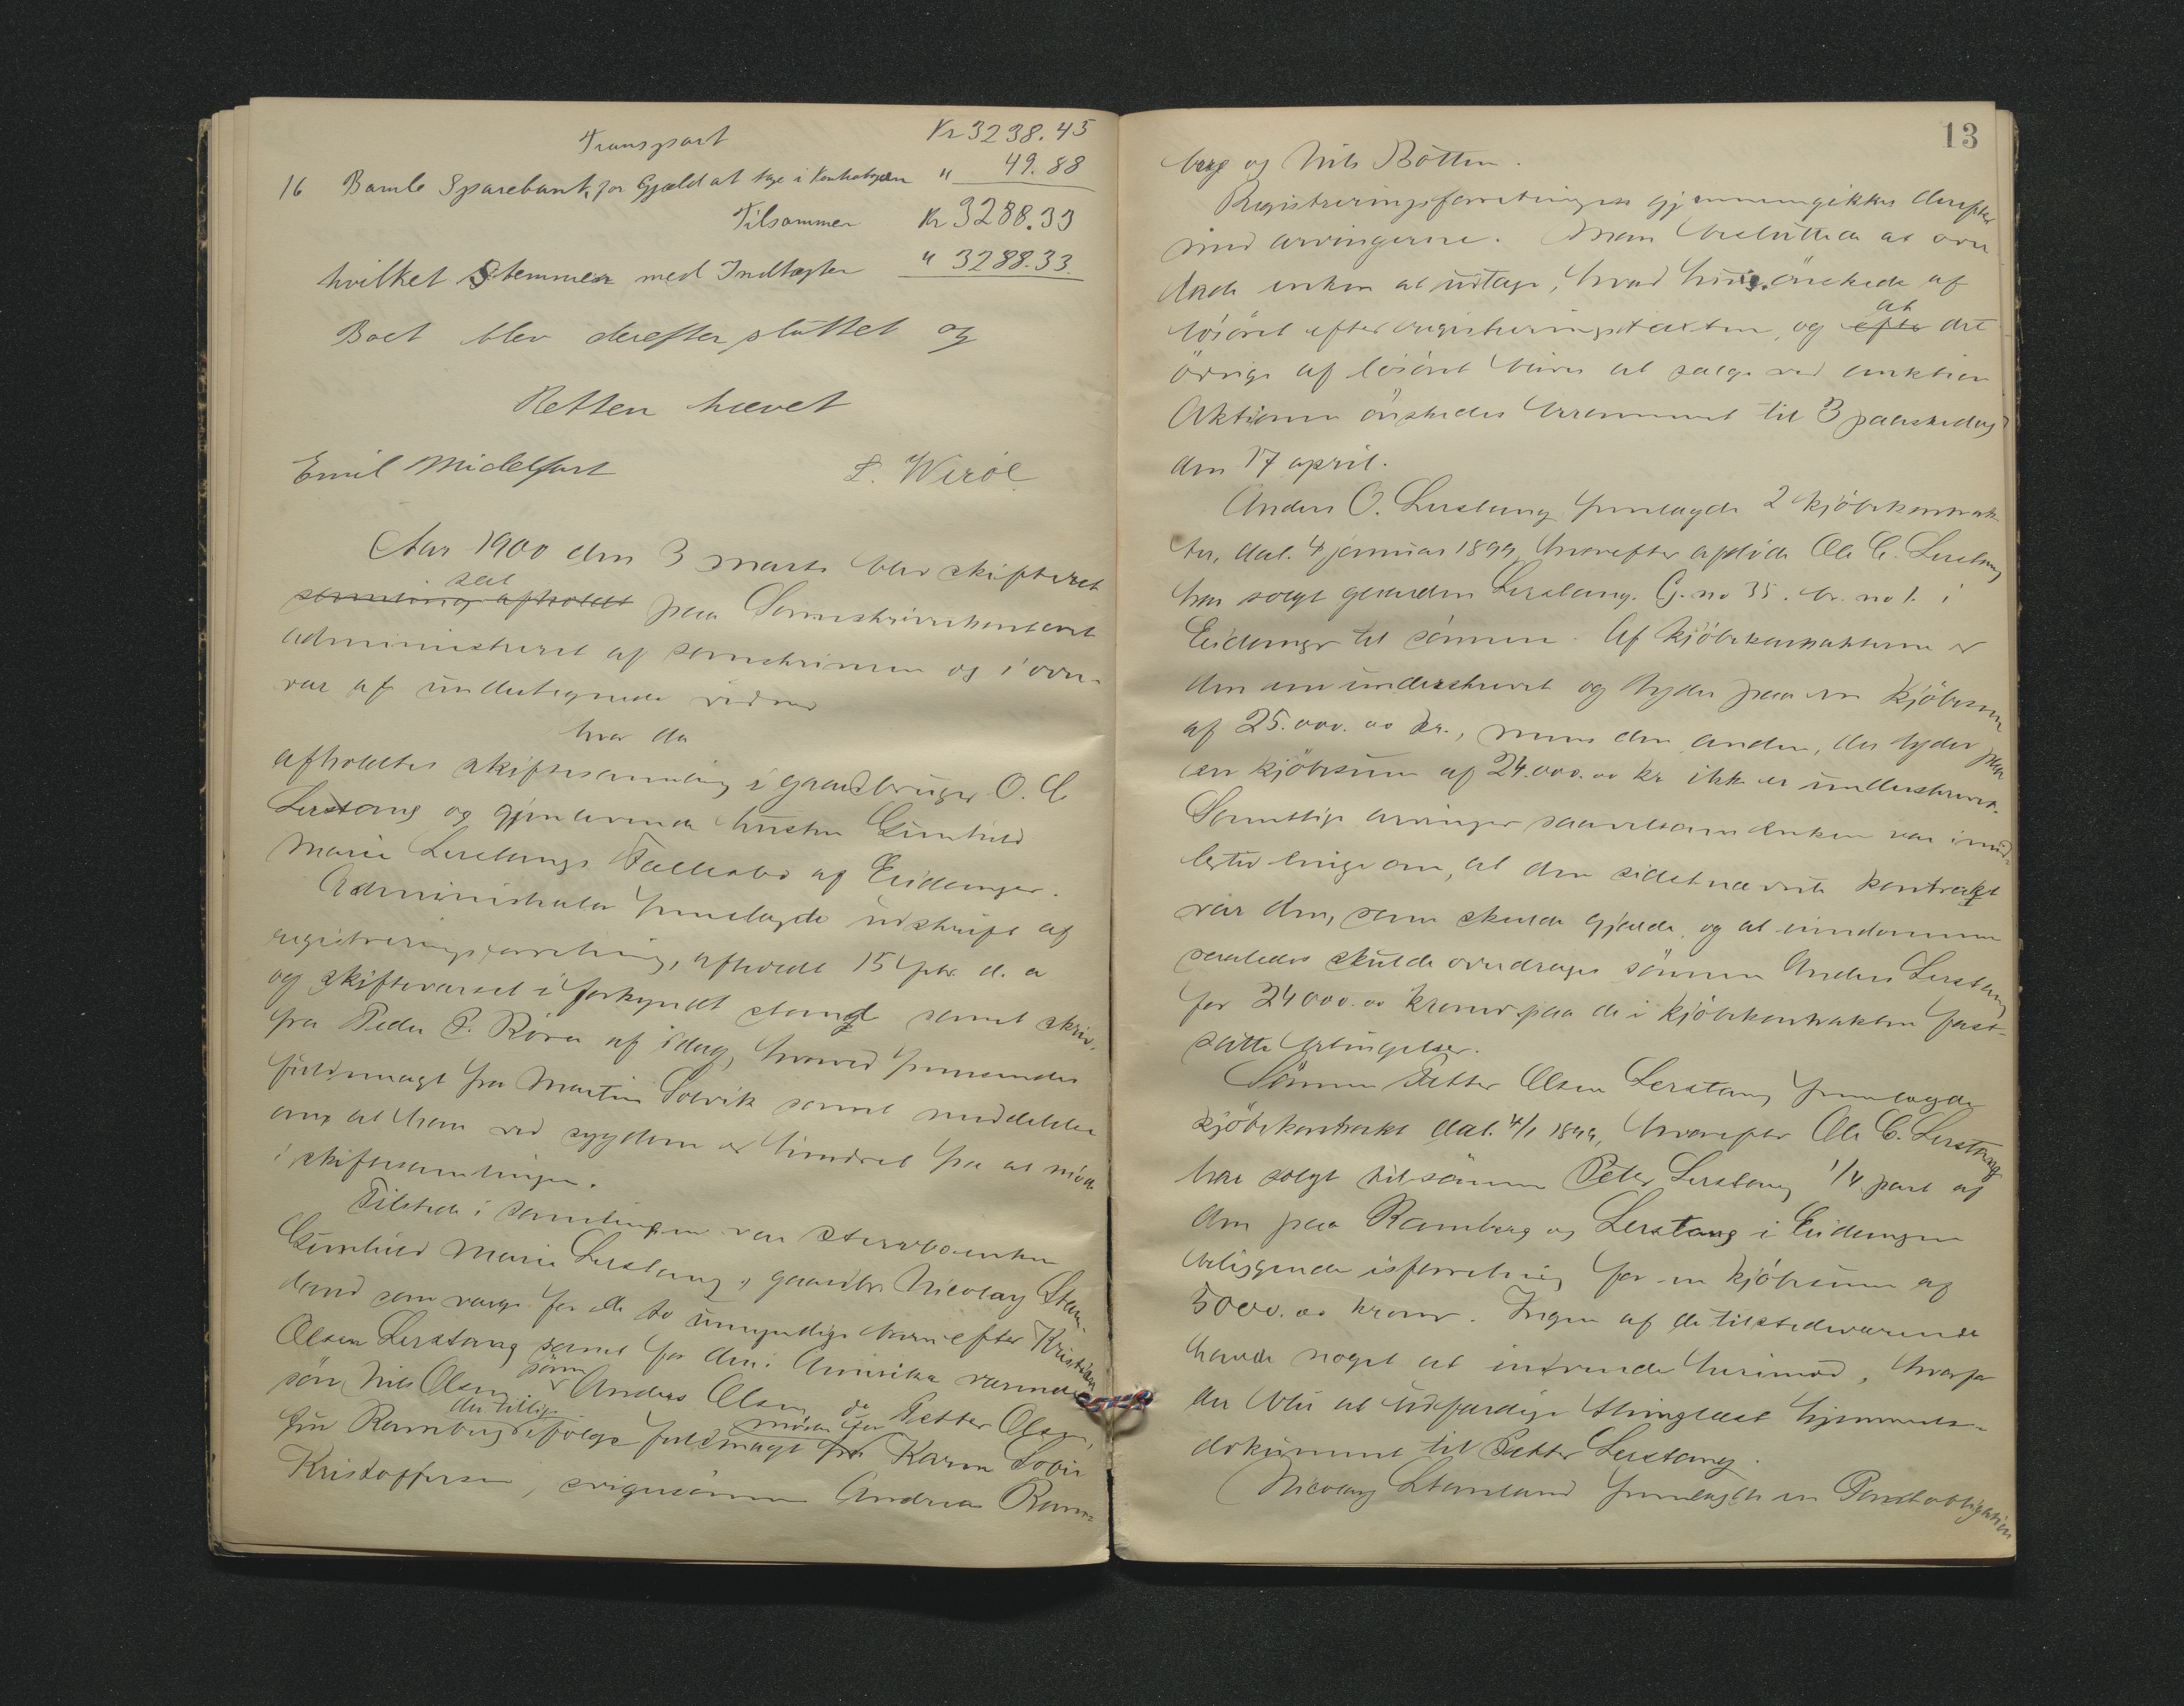 Transport Kr 3238.45
16 Bamle Sparebank, for Gjæld at tage i Kontrabogen " 49.88
Tilsammen Kr 3288.33
hvilket Stemmer med Indtægter " 3288.33
Boet blev derefter sluttet og
Retten hævet
Emil Midelfart L. Weröe
Aar 1900 den 3 marts blev skifteret
sat
samling afholdt paa Sorenskriverkontoret
administreret af sorenskriveren og i over-
vær af undertegnede vidner
hvor da
afholdtes skiftesamling i gaardbruger O. C.
Lerstang og gjenlevende hustru Gunhild
Marie Lerstangs Fællesbo af Eidanger.
Administrator fremlagde udskrift af
registreringsforretning, afholdt 15 febr. d. a
og skiftevarsel i forkyndt stand samt skriv.
fra Peder P. Röra af idag, hvorved fremsendes
fuldmagt fra Martin Solvik samt meddeles
om, at han ved sygdom er hindret fra at möde
i skiftesamlingen.
Tilstede i samlingen var stervboenken
Gunhild Marie Lerstang, gaardbr Nicolay Stam-
land som verge for de to umyndige barn efter Kristian
Olsen Lerstang samt for den i Amerika værende
sön Nils Olsen, sönn Anders Olsen, do Petter Olsen,
der tillige möder for
fru Ramberg ifölge fuldmagt fra Karen Sovie
Kristoffersen, svigersönnen Andreas Ram-
13
berg og Nils Bötten.
Registreringsforretningen gjennemgikkes derefter
med arvingerne. Man besluttede at over
lade enken at udtage, hvad hun önskede af
at
lösöret efter registreringstaxten, og efter det
övrige af lösöret bliver at sælge ved auktion
Aktionen önskedes berammet til 3 paaskedag
den 17 april.
Anders O. Lerstang fremlagde 2 kjöbekontrak-
ter, dat. 4 januar 1899, hvorefter afdöde Ole C. Lerstang
har solgt gaarden Lerstang. G. no 35. br. no 1. i
Eidanger til sönnen. Af kjöbekontrakterne er
den ene underskrevet og lyder paa en kjöbesum
af 25.000.00 kr., mens den anden, der lyder paa
en kjöbesum af 24.000.00 kr ikke er underskrevet.
Samtlige arvinger saavelsom enken var imid-
lertid enige om, at den sidstnævnte kontrakt
var den, som skulde gjælde, og at eiendommen
saaledes skulde overdrages sönnen Anders Lerstang
for 24000.00 kroner paa de i kjöbekontrakten fast-
satte betingelser.
Sönnen Petter Olsen Lerstang fremlagde
kjöbekontrakt dat. 4/1 1899, hvorefter Ole C. Lerstang
har solgt til sönnen Peter Lerstang 1/4 part af
den paa Ramberg og Lerstang i Eidanger
beliggende isforretning for en kjöbesum af
5000.00 kroner. Ingen af de tilstedeværende
havde noget at indvende herimod, hvorfor
der blir at udfærdige thinglæst hjemmels-
dokument til Petter Lerstang.
Nicolay Stamland fremlagde en Pantobligation